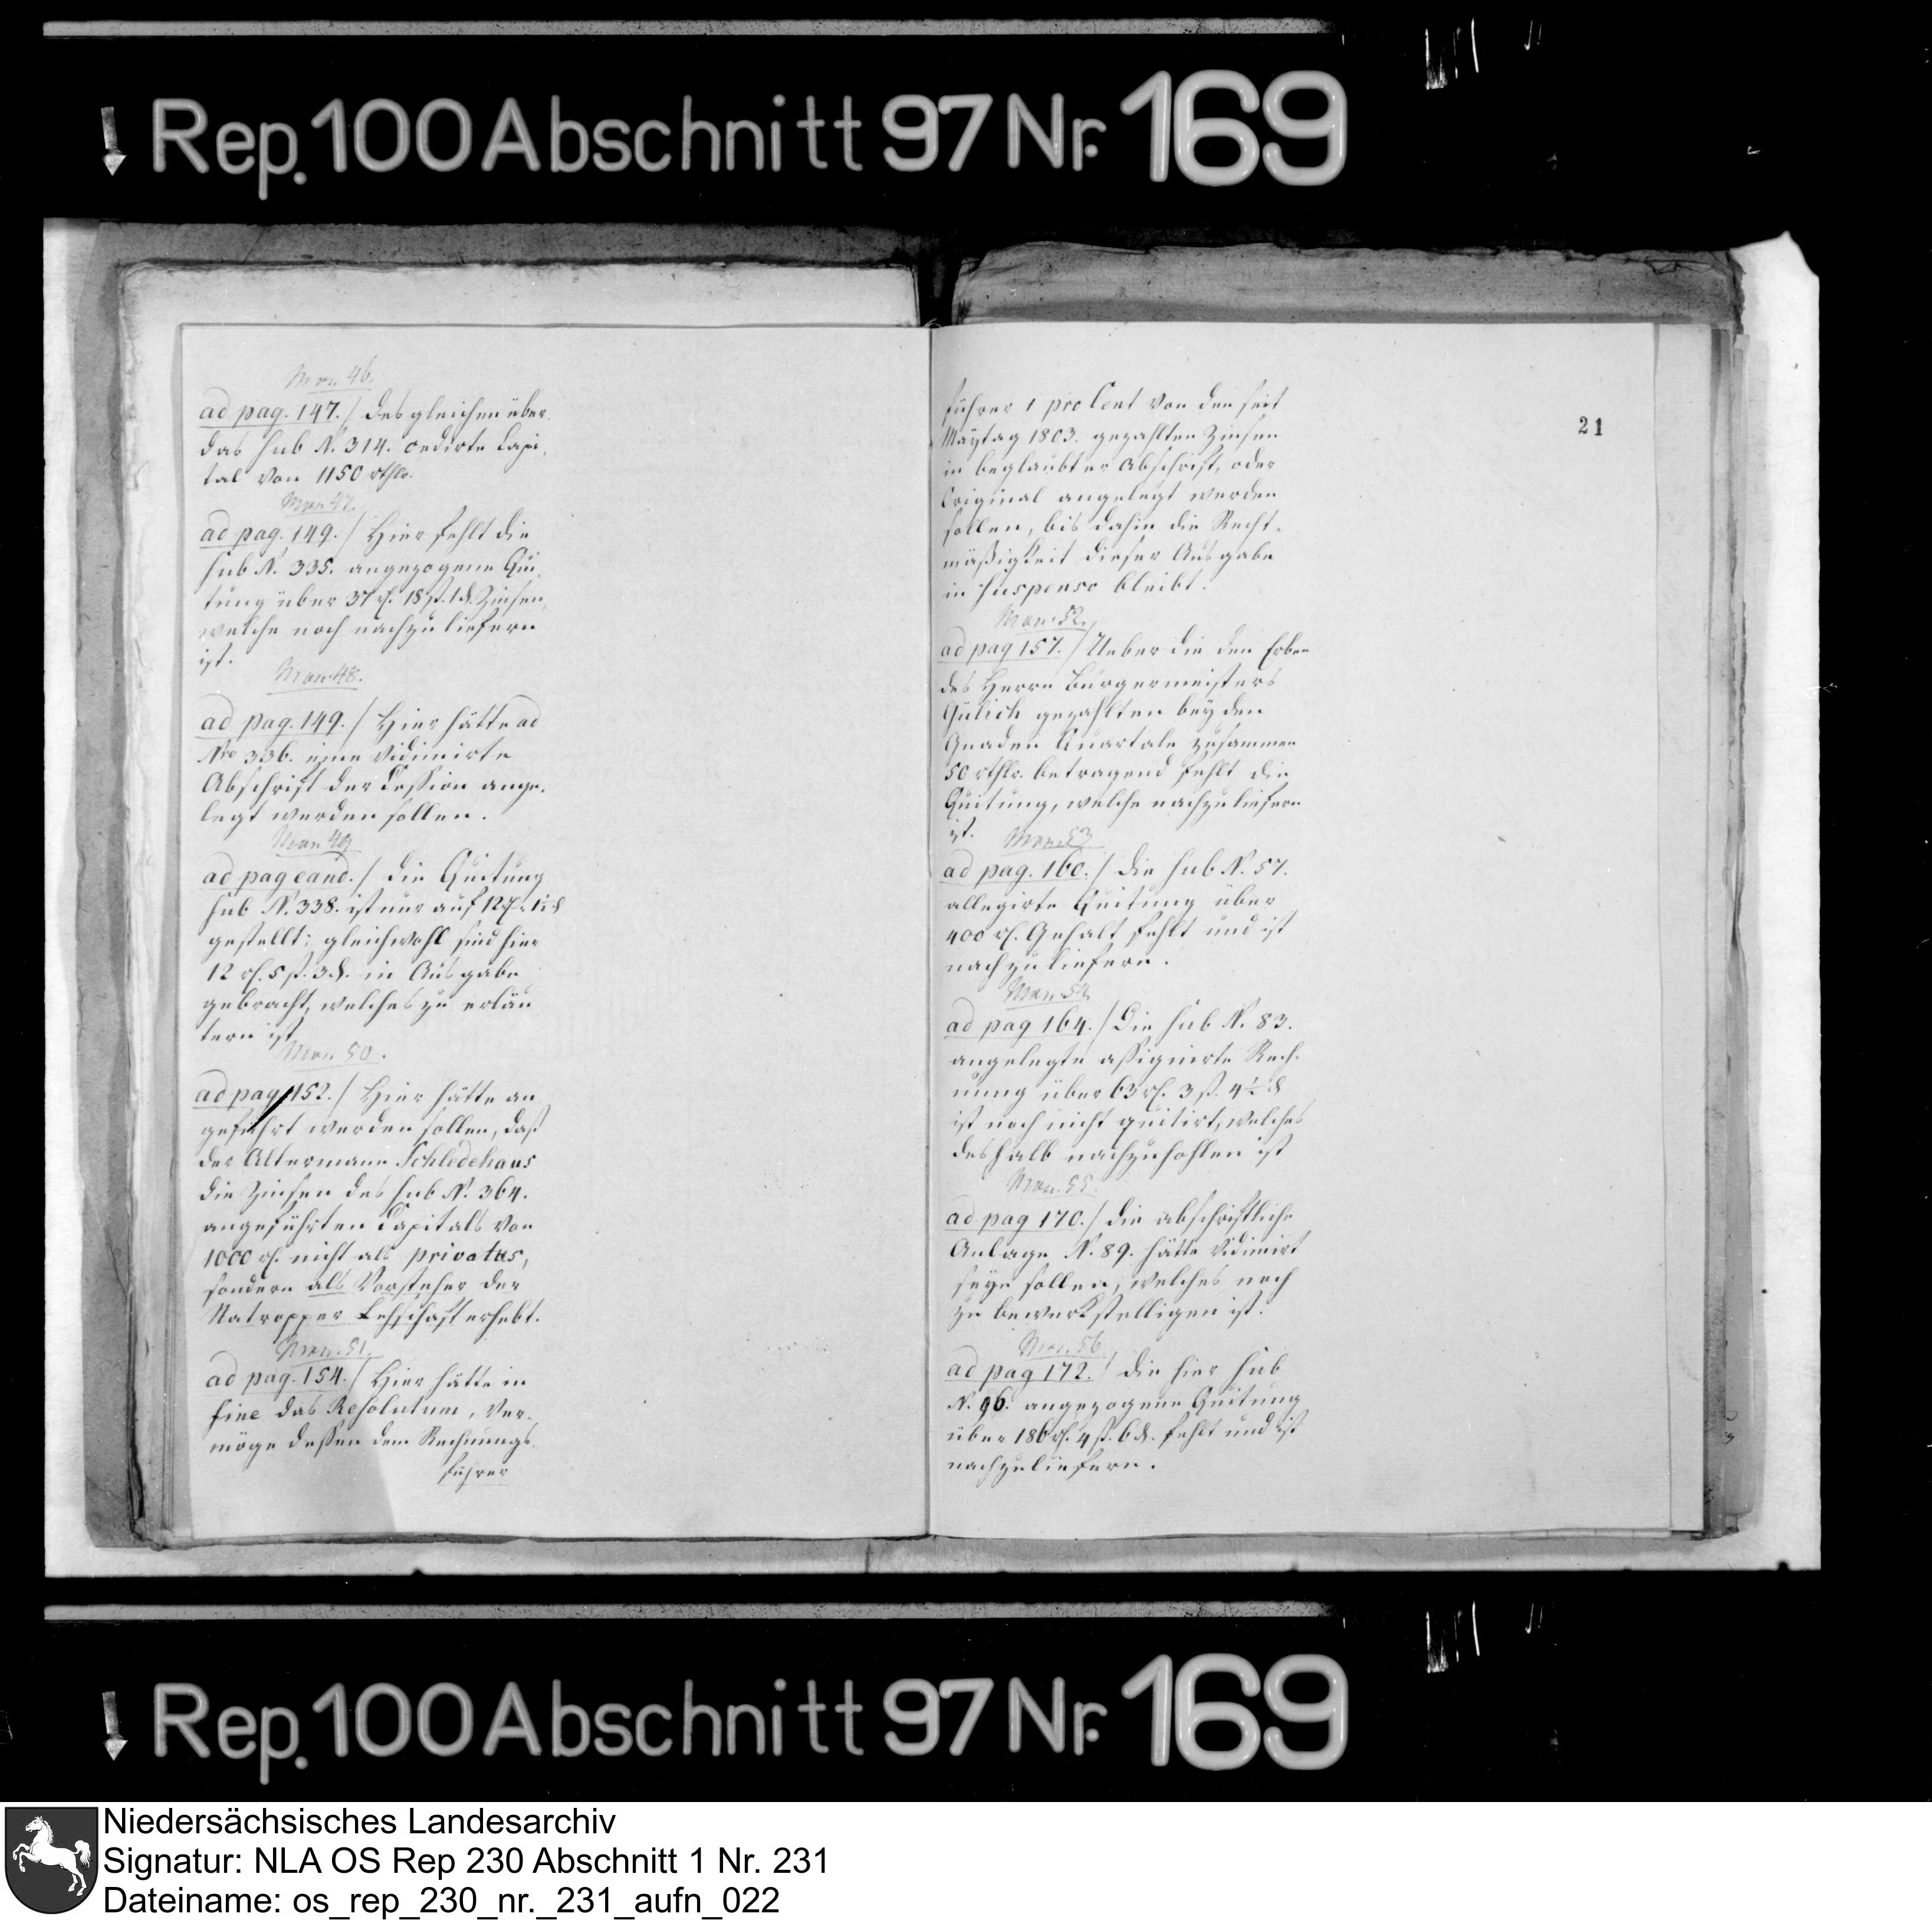 Rep. 100 Abschnitt 97 Nr. 169
Mon. 46.
ad pag. 147./ Desgleichen über
das sub N. 314. cedirte Capi,
tal von 1150 rthlr.
Mon 47.
ad pag. 149./ Hier fehlt die
sub N. 335. angezogene Qui,
tung über 37 rl. 18 ß. 1 d. Zinsen,
welche noch nachzuliefern
ist.
Mon 48.
ad pag. 149./ Hier hätte ad
Nro 336. eine vidimirte
Abschrift der Cession ange,
legt werden sollen.
Mon 49
ad pag ead./ die Quitung
sub N. 338. ist nur auf
gestellt; gleichwohl sind hier
12 rl. 5 ß. 3 d. in Ausgabe
gebracht, welches zu erläu
tern ist
Mon. 50.
ad pag 152./ Hier hätte an
geführt werden sollen, daß
der Altermann Schledehaus
die Zinsen des sub N. 364.
angeführten Capitals von
1000 rl. nicht als privatus,
sondern als Vorsteher der
Natropper Lehschaft erhebt.
Mon. 51.
ad pag. 154./ Hier hätte in
fine das Resolutum, Ver,
möge dessen dem Rechnungs,
führer
21
führer 1 pro Cent von den seit
Maytag 1803. gezahlten Zinsen
in beglaubter Abschrift, oder
Original angelegt werden
sollen, bis dahin die Recht,
mäßigkeit dieser Ausgabe
in suspenso bleibt.
Mon. 52.
ad pag 157./ Ueber die den Erben
des Herrn Bürgermeisters
Gülich gezahlten beyden
Gnaden Quartale zusammen
50 rthlr. betragend fehlt die
Quitung, welche nachzuliefern
ist.
Mon. 53
ad pag. 160./ die sub N. 57.
allegirte Quitung über
400 rl. Gehalt fehlt und ist
nachzuliefern.
Mon. 54.
ad pag 164./ Die sub N. 83.
angelegte assignirte Rech,
nung über 63 rl. 3 ß. 4½ d
ist noch nicht quitirt, welches
deshalb nachzuhohlen ist
Mon. 55.
ad pag 170./ die abschriftliche
Anlage N. 89. hätte vidimirt
seyn sollen, welches noch
zu bewerkstelligen ist.
Mon. 56
ad pag 172./ die hier sub
N. 96. angezogene Quitung
über 186 rl. 4 ß. 6 d. fehlt und ist
nachzuliefern.
Rep. 100 Abschnitt 97 Nr. 169
Niedersächsisches Landesarchiv
Signatur: NLA OS Rep 230 Abschnitt 1 Nr. 231
Dateiname: os_rep_230_nr._231_aufn_022